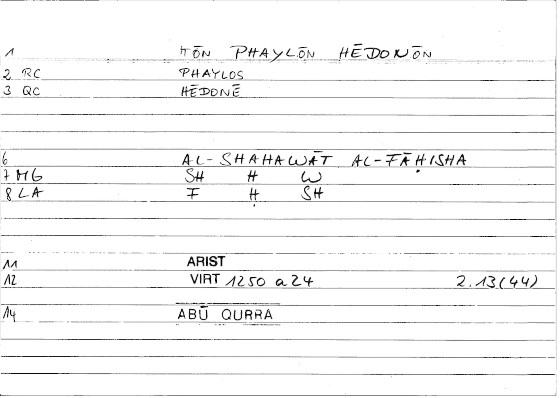 1 TŌN PHAYLŌN HĒDONŌN
2 RC PHAYLOS
3 QC HĒDONĒ
6 AL-SHAHAWĀT AL-FĀḤISHA
7 MG SH H W
8 LA F Ḥ SH
11 ARIST
12 VIRT 1250 a24 2.13(44)
14 ABŪ QURRA